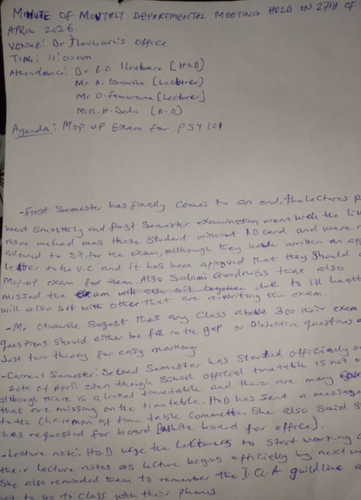 MINUTE OF MONTHLY DEPARTMENTAL MEETING HELD IN 27TH OF
APRIL 2026.
VENUE: Dr Iloubara's Office
TIME: 11:00am
Attendance: Dr E.O Iloubara [HOD]
Mr A. [Lecturer]
Mr O. [Lecturer]
Miss. H. [A-O]
Agenda: MOP UP Exam for PSY 101
- First Semester has finally comes to an end, The lectures
went smoothly and first semester examination went well the
issue we had was those Student without ID card and were
allowed to sit for the exam, although they have written an
letter to the V.C and it has been approved that they should
Mop-up exam for them. Also Salami Goodness that also
missed the exam due to ill health
will also sit with other that are rewriting the exam
- Mr Suggest that any Class above 300 their exam
questions should either be fill in the gap or Objective questions
Just two theory for easy marking.
- Current Semester: Second Semester has started officially on
20th of April even though School official timetable is not
although there is a timetable and there are many
that are missing on the timetable. HOD has sent a message
to the Chairman of time table Committee. She also said
has requested for board [white board for office].
- Lecture note: HOD urge the Lecturers to start working
their lecture notes as lecture begins officially by next
She also reminded them to remember the I.Q.A guideline
not to go to class with their phones.